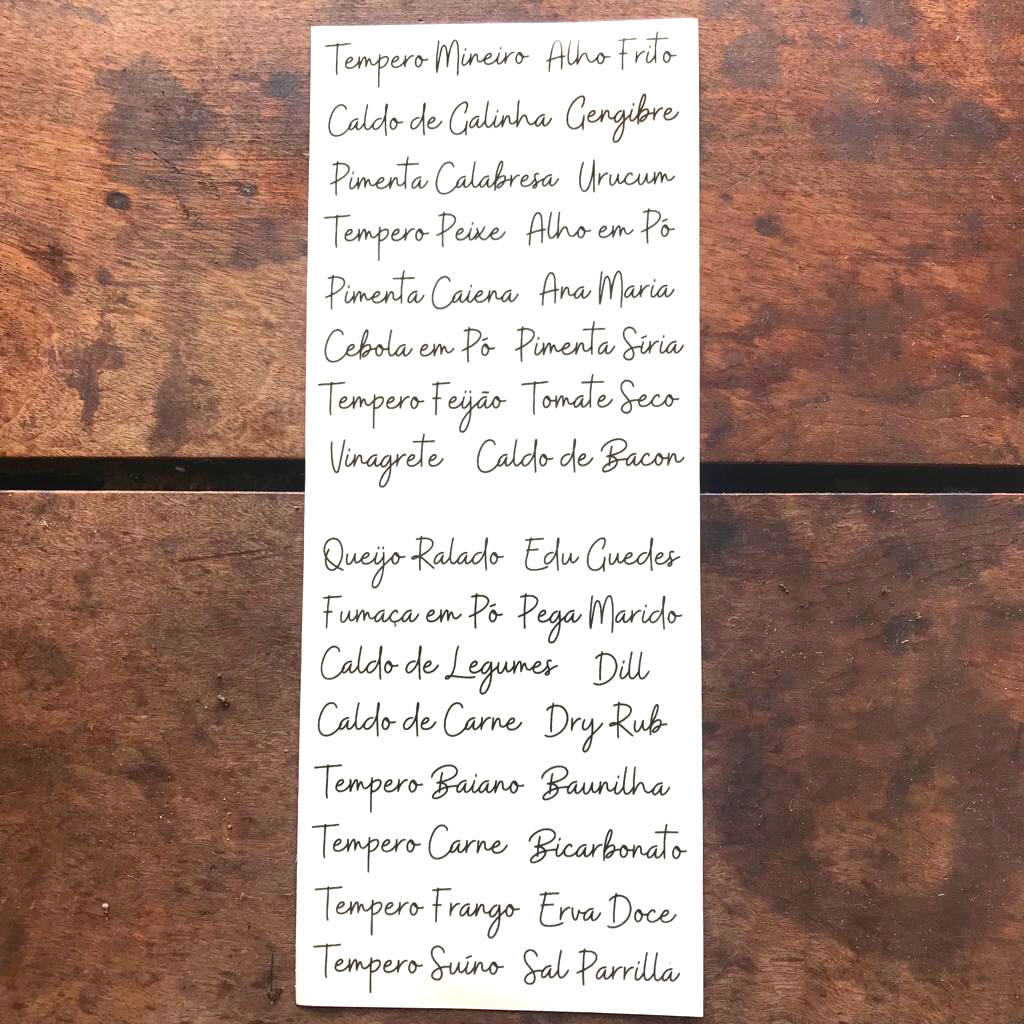 Tempero Mineiro Alho Frito
Caldo de Galinha Gengibre
Pimenta Calabresa Urucum
Tempero Peixe Alho em Pó
Pimenta Caiena Ana Maria
Cebola em Pó Pimenta Síria
Tempero Feijão Tomate Seco
Vinagrete Caldo de Bacon
Queijo Ralado Edu Guedes
Fumaça em Pó Pega Marido
Caldo de Legumes Dill
Caldo de Carne Dry Rub
Tempero Baiano Baunilha
Tempero Carne Bicarbonato
Tempero Frango Erva Doce
Tempero Suíno Sal Parrilla